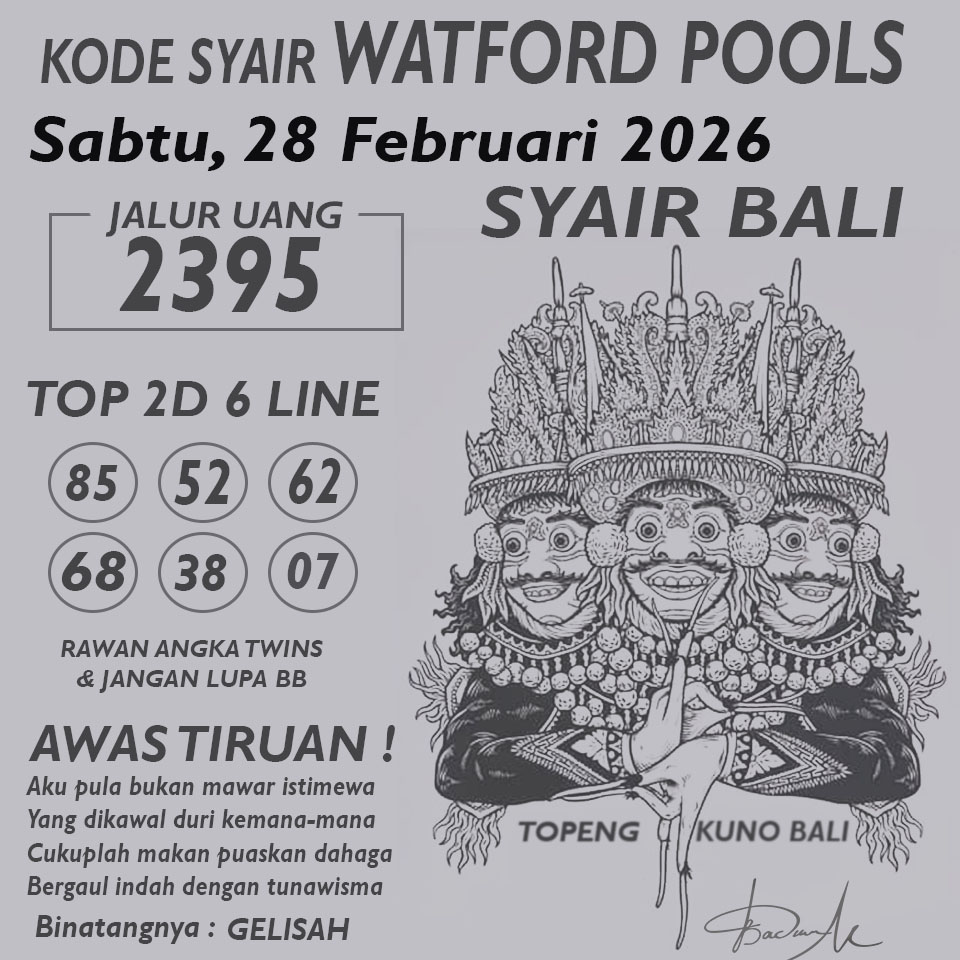 KODE SYAIR WATFORD POOLS
Sabtu, 28 Februari 2026
SYAIR BALI
JALUR UANG
2395
TOP 2D 6 LINE
85 52 62
68 38 07
RAWAN ANGKA TWINS
& JANGAN LUPA BB
AWAS TIRUAN !
Aku pula bukan mawar istimewa
Yang dikawal duri kemana-mana
Cukuplah makan puaskan dahaga
Bergaul indah dengan tunawisma
Binatangnya : GELISAH
TOPENG KUNO BALI